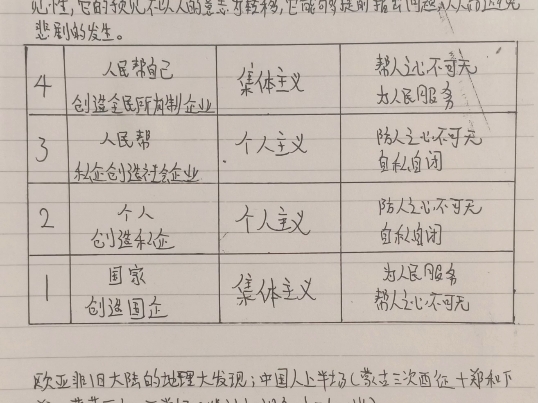 见性,它的预见不以人的意志为转移,它能够提前指出问题,从人
悲剧的发生。
4 人民帮自己 集体主义 帮人之心不可无
创造全民所有制企业 为人民服务
3 人民帮 个人主义 防人之心不可无
私企创造社会企业 自私自闭
2 个人 个人主义 防人之心不可无
创造私企 自私自闭
1 国家 集体主义 为人民服务
创造国企 帮人之心不可无
欧亚非旧大陆的地理大发现;中国人上半场(蒙古三次西征+郑和下